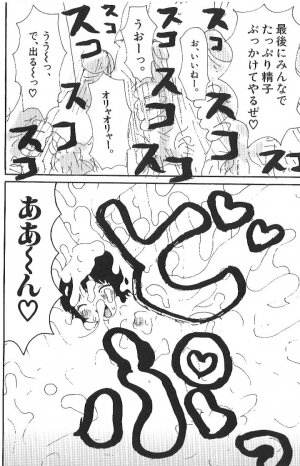 最後にみんなで
たっぷり精子
ぶっかけてやるぜ♡
お、いいねー。
うおーっ。
オリャオリャー。
うぅ〜っ
で、出る〜っ♡
スコ
スコ
スコ
スコ
スコ
スコ
ああ〜ん♡
どぷっ♡